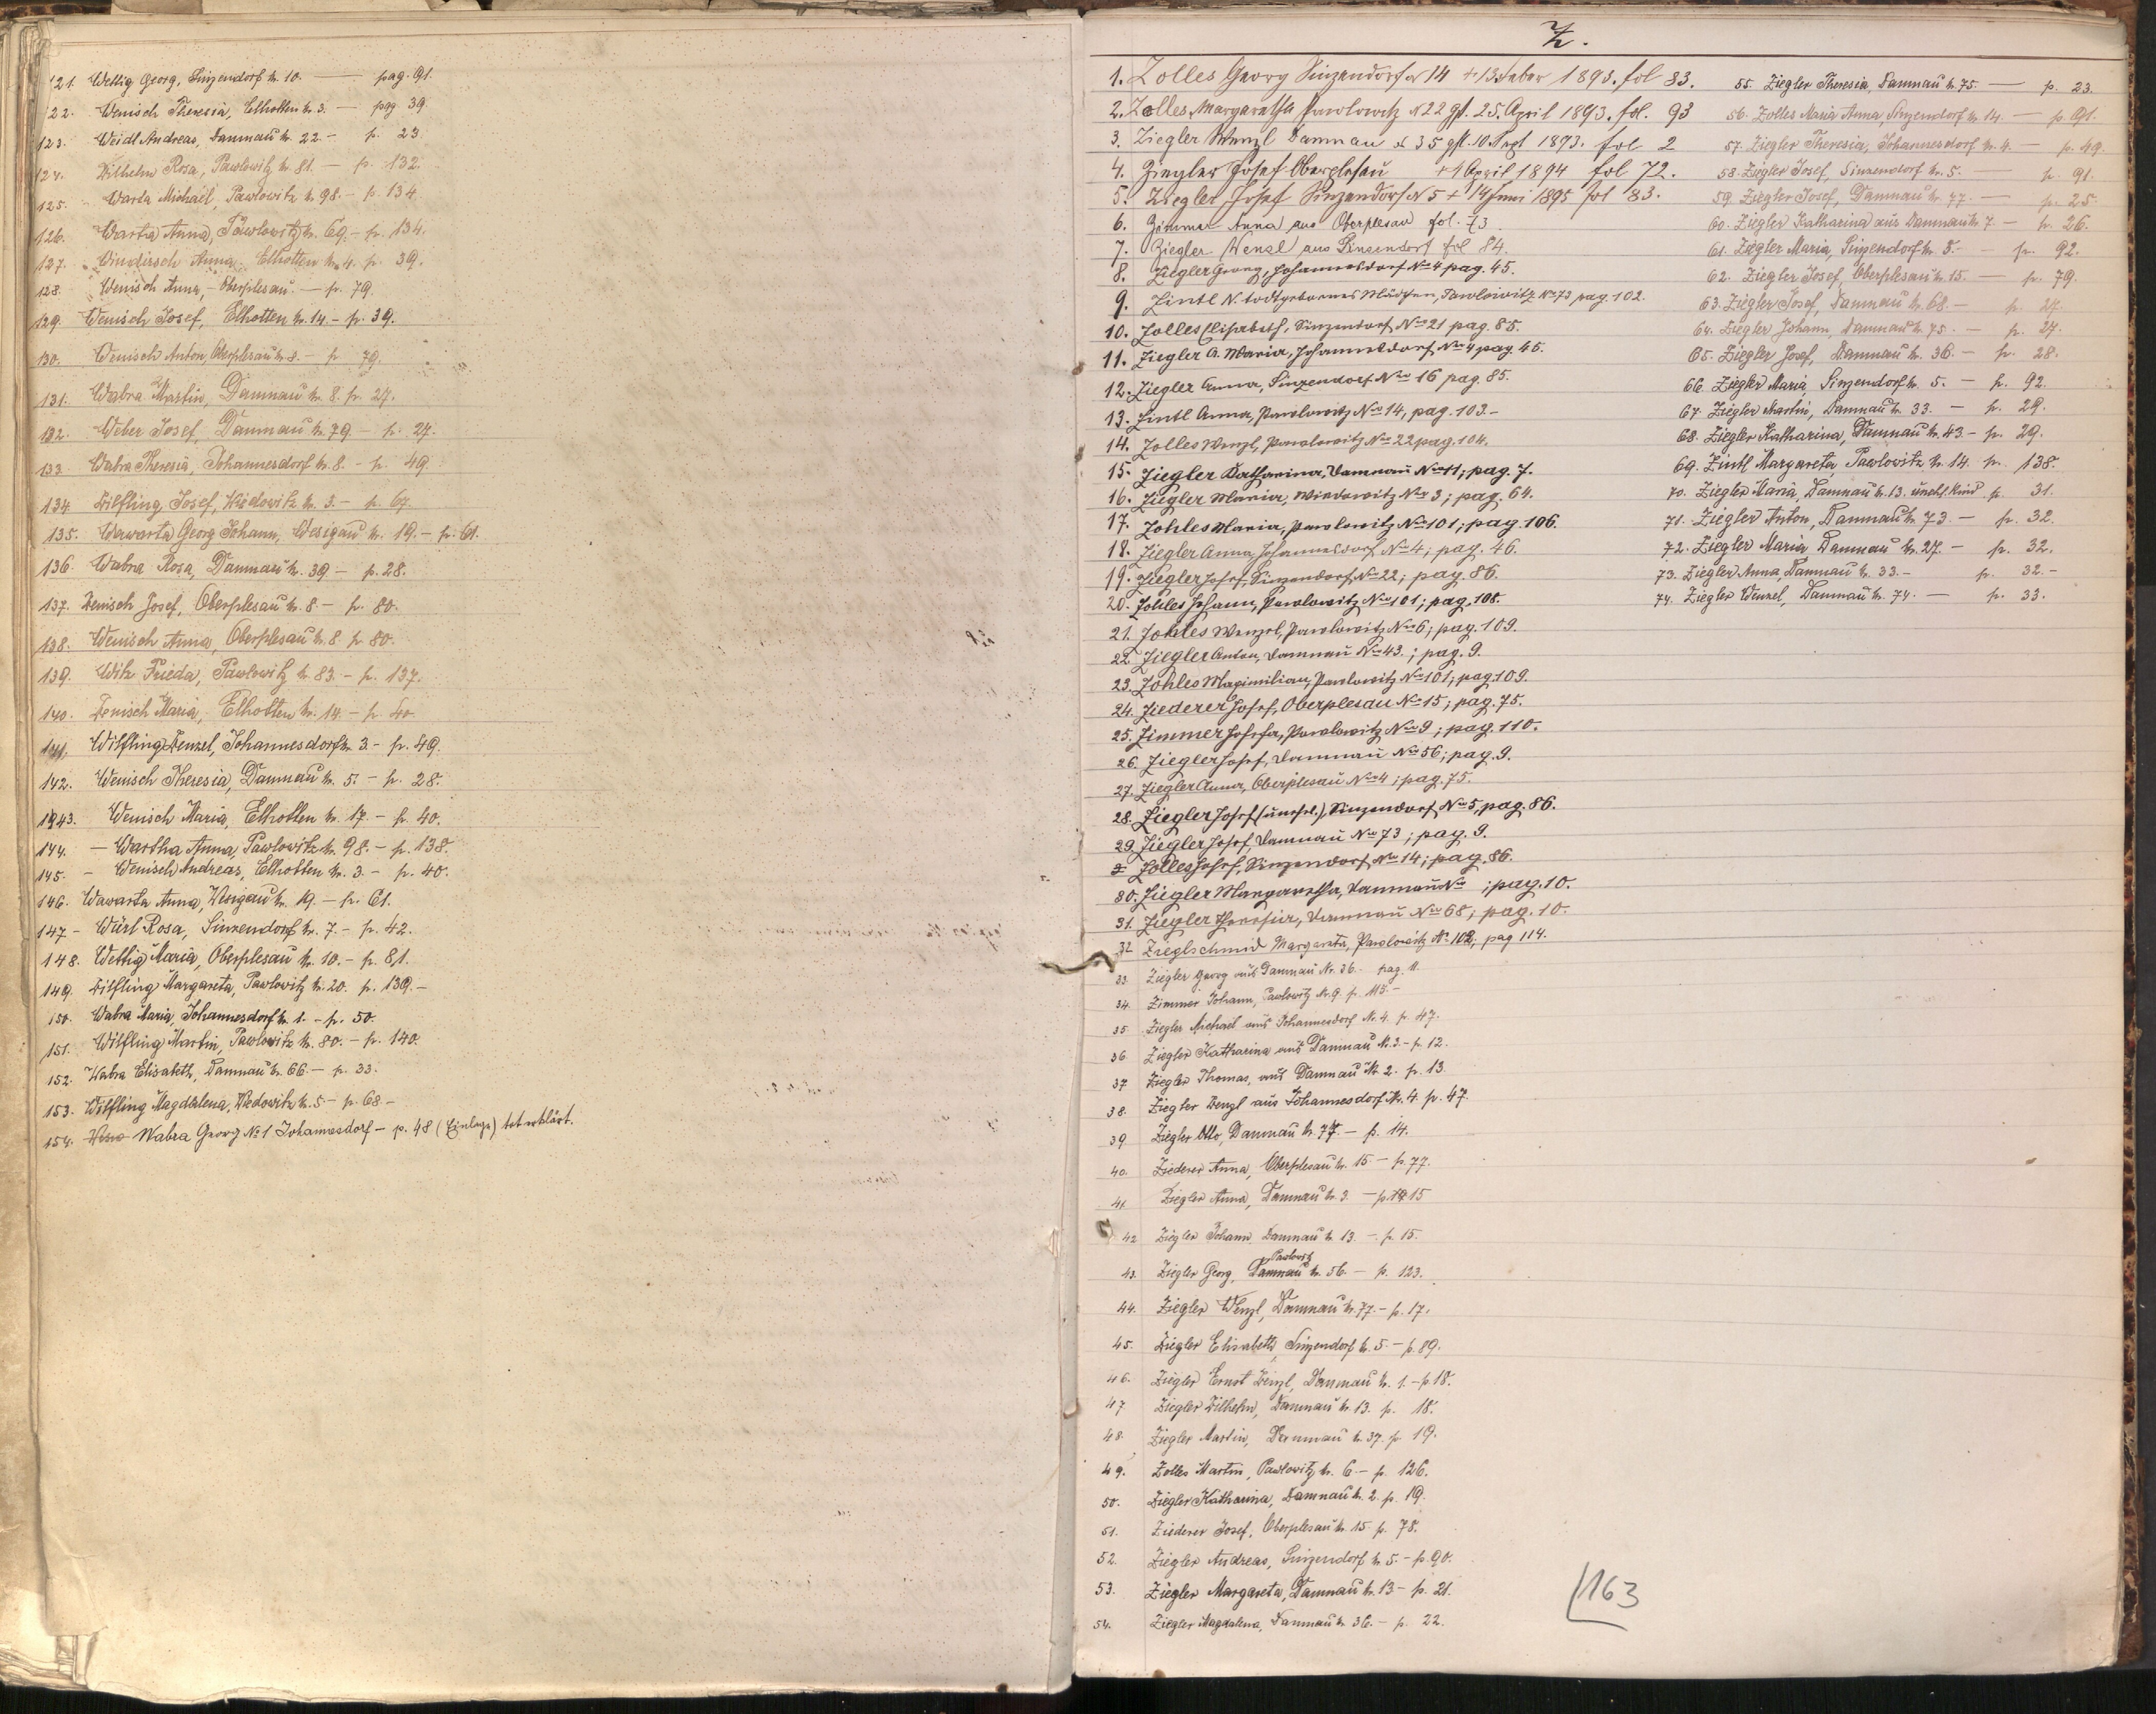 121. Wettig Georg, Sinzendorf n. 10. — pag. 91.
122. Wenisch Theresia, Elhotten n. 3. — pag 39.
123. Weidl Andreas, Damnaŭ n. 22 – p. 23
124. Wilhelm Rosa, Pawlowitz n. 81. — p. 132.
125. Warta Michael, Pawlowitz n. 98. – p. 134
126. Warta Anna, Pawlowitz n. 69. – p. 134.
127. Windirsch Anna, Elhotten n. 4. p. 39.
128. Wenisch Anna, – Oberplesaŭ. — p. 79.
129. Wenisch Josef, Elhotten n. 14. – p. 39.
130. Wenisch Anton, Oberplesaŭ n. 8. – p 79.
131. Wabra Martin, Damnaŭ n. 8. p. 27.
132. Weber Josef, Damnaŭ n. 79. – p. 27.
133. Wabra Theresia, Johannesdorf n. 8. – p. 49.
134 Wilfling Josef, Wiedowitz n. 3. – p. 67.
135. Wawarta Georg Johann, Wesigaŭ n. 19. – p. 61.
136. Wabra Rosa, Damnaŭ n. 39 – p. 28.
137. Wenisch Josef, Oberplesaŭ n. 8 – p. 80.
138. Wenisch Anna, Oberplesaŭ n. 8. p 80.
139. Witz Frieda, Pawlowitz n. 83. – p. 137.
140. Wenisch Maria, Elhotten n. 14. – p. 40
141. Wilfling Wenzel, Johannesdorf n. 3. – p. 49.
142. Wenisch Theresia, Damnaŭ n. 5. – p. 28.
1943. Wenisch Maria, Elhotten n. 17. – p. 40.
144. — Wartha Anna, Pawlowitz n. 98. – p. 138.
145. – Wenisch Andreas, Elhotten n. 3. – p. 40.
146. Wawarta Anna, Wesigaŭ n. 19. – p. 61.
147 – Würl Rosa, Sinzendorf n. 7. – p. 42.
148. Wettig Maria, Oberplesaŭ n. 10. – p. 81.
149. Wilfling Margareta, Pawlowitz n. 20. p. 139. –
150. Wabra Maria, Johannesdorf n. 1. – p. 50.
151. Wilfling Martin, Pawlowitz n. 80. – p. 140.
152. Wabra Elisabeth, Damnaŭ n. 66. – p. 33.
153. Wilfling Magdalena, Wiedowitz n. 5 – p. 68 –
154. Wabra Georg No 1 Johannesdorf – p. 48 (Einlage) tot erklärt.
Z.
1. Zolles Georg Sinzendorf N 14 + 13. Feber 1893. fol 83.
2. Zolles Margaretha Pawlowitz N 22 gst. 25. April 1893. fol. 93
3. Ziegler Wenzl Damnau N 35 gst. 10. Sept 1893. fol 2
4. Ziegler Josef Oberplesaŭ + 9 April 1894 fol 72.
5. Ziegler Josef Sinzendorf N 5 + 14 Juni 1895 fol 83.
6. Zimmer Anna aus Oberplesau fol. 73.
7. Ziegler Wenzl aus Sinzendorf fol 84.
8. Ziegler Georg, Johannesdorf Nro 4 pag. 45.
9. Zintl N. todtgebornes Mädchen, Pawlowitz Nro 73 pag. 102.
10. Zolles Elisabeth, Sinzendorf Nro 21 pag. 85.
11. Ziegler A. Maria, Johannesdorf Nro 4 pag. 45.
12. Ziegler Anna, Sinzendorf Nro 16 pag. 85.
13. Zintl Anna, Pawlowitz Nro 14, pag. 103. –
14. Zolles Wenzl, Pawlowitz Nro 22 pag. 104.
15. Ziegler Katharina, Damnaŭ Nro 11; pag. 7.
16. Ziegler Maria, Wiedowitz Nro 3; pag. 64.
17. Zohles Maria, Pawlowitz Nro 101; pag. 106.
18. Ziegler Anna, Johannesdorf Nro 4; pag. 46.
19. Ziegler Josef, Sinzendorf, Nro 22; pag. 86.
20. Zohles Johann, Pawlowitz Nro 101; pag. 108.
21. Zohles Wenzel, Pawlowitz Nro 6; pag. 109.
22 Ziegler Anton, Damnaŭ Nro 43.; pag. 9.
23. Zohles Maximilian, Pawlowitz Nro 101; pag. 109.
24. Ziederer Josef, Oberplesau Nro 15; pag. 75.
25. Zimmer Josefa, Pawlowitz Nro 9; pag. 110.
26. Ziegler Josef, Damnaŭ Nro 56; pag. 9.
27. Ziegler Anna, Oberplesaŭ Nro 4; pag. 75.
28. Ziegler Josef (unehel.), Sinzendorf Nro 5, pag. 86.
29. Ziegler Josef, Damnaŭ Nro 73; pag. 9.
Zolles Josef, Sinzendorf Nro 14; pag. 86.
30. Ziegler Margaretha, Damnaŭ Nro ; pag. 10.
31. Ziegler Theresia, Damnaŭ Nro 68; pag. 10.
32 Zieglschmid Margareta, Pawlowitz No 102; pag 114.
33. Ziegler Georg aus Damnaŭ Nr. 36. pag. 11.
34. Zimmer Johann, Pawlowitz Nr. 9. p. 115. –
35. Ziegler Michael aus Johannesdorf Nr. 4. p. 47.
36. Ziegler Katharina aus Damnaŭ Nr. 3. – p. 12.
37 Ziegler Thomas, aus Damnaŭ Nr. 2. p. 13.
38. Ziegler Wenzl aus Johannesdorf Nr. 4. p. 47.
39 Ziegler Otto, Damnaŭ n. 77. – p. 14.
40. Ziederer Anna, Oberplesaŭ n. 15 – p. 77.
41 Ziegler Anna, Damnaŭ n. 3. – p. 15
42 Ziegler Johann Damnaŭ n. 13. – p. 15.
Pawlowitz
43. Ziegler Georg, Damnaŭ n. 56. – p. 123.
44. Ziegler Wenzl, Damnaŭ n. 77. – p. 17.
45. Ziegler Elisabeth, Sinzendorf n. 5. – p. 89.
46. Ziegler Ernst Wenzl, Damnaŭ n. 1. – p. 18.
47 Ziegler Wilhelm, Damnaŭ n. 13. p. 18.
48. Ziegler Martin, Damnaŭ n. 37. p. 19.
49. Zolles Martin, Pawlowitz n. 6 – p. 126.
50. Ziegler Katharina, Damnaŭ n. 2. p. 19.
51. Ziederer Josef, Oberplesaŭ n. 15 p. 78.
52. Ziegler Andreas, Sinzendorf n. 5. – p. 90.
53. Ziegler Margareta, Damnaŭ n. 13 – p. 21.
54. Ziegler Magdalena, Damnaŭ n. 36. – p. 22.
55. Ziegler Theresia, Damnaŭ n. 75. — p. 23
56. Zolles Maria Anna, Sinzendorf n. 14. — p. 91.
57. Ziegler Theresia, Johannesdorf n. 4. — p. 49.
58. Ziegler Josef, Sinzendorf n. 5. — p. 91
59. Ziegler Josef, Damnaŭ n. 77. — p. 25.
60. Ziegler Katharina aus Damnaŭ n. 7 — p. 26.
61. Ziegler Maria, Sinzendorf n. 5. — p. 92.
62. Ziegler Josef, Oberplesaŭ n. 15. — p. 79.
63. Ziegler Josef, Damnaŭ n. 68. — p. 27.
64. Ziegler Johann, Damnaŭ n. 75. — p. 27.
65. Ziegler Josef, Damnaŭ n. 36. — p. 28.
66. Ziegler Maria, Sinzendorf n. 5. — p. 92.
67. Ziegler Martin, Damnaŭ n. 33. — p. 29.
68. Ziegler Katharina, Damnaŭ n. 43. – p. 29.
69. Zintl Margareta, Pawlowitz n. 14. p. 138.
70. Ziegler Maria, Damnaŭ n. 13. unehl. Kind p. 31.
71. Ziegler Anton, Damnaŭ n. 73. — p. 32.
72. Ziegler Maria, Damnaŭ n. 27. – p. 32.
73. Ziegler Anna, Damnaŭ n. 33. – p. 32. –
74. Ziegler Wenzel, Damnaŭ n. 74. — p. 33.
163